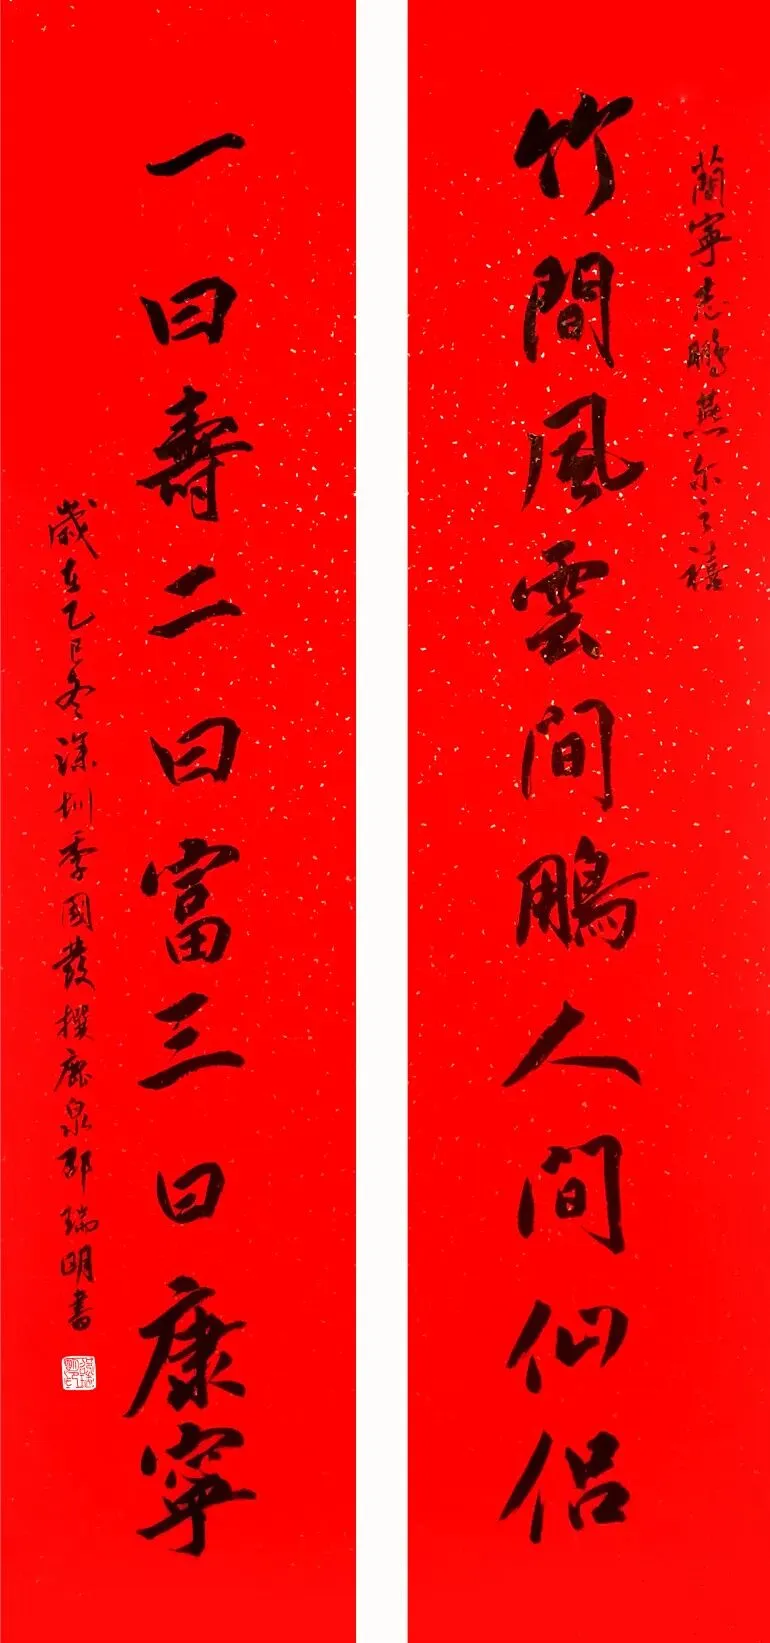 蘭寧志鵬燕尔之禧
竹間風雲間鵬人间仙侣
一曰壽二曰富三曰康寧
歲在乙巳冬深圳季國發撰鹿泉邵瑞明書